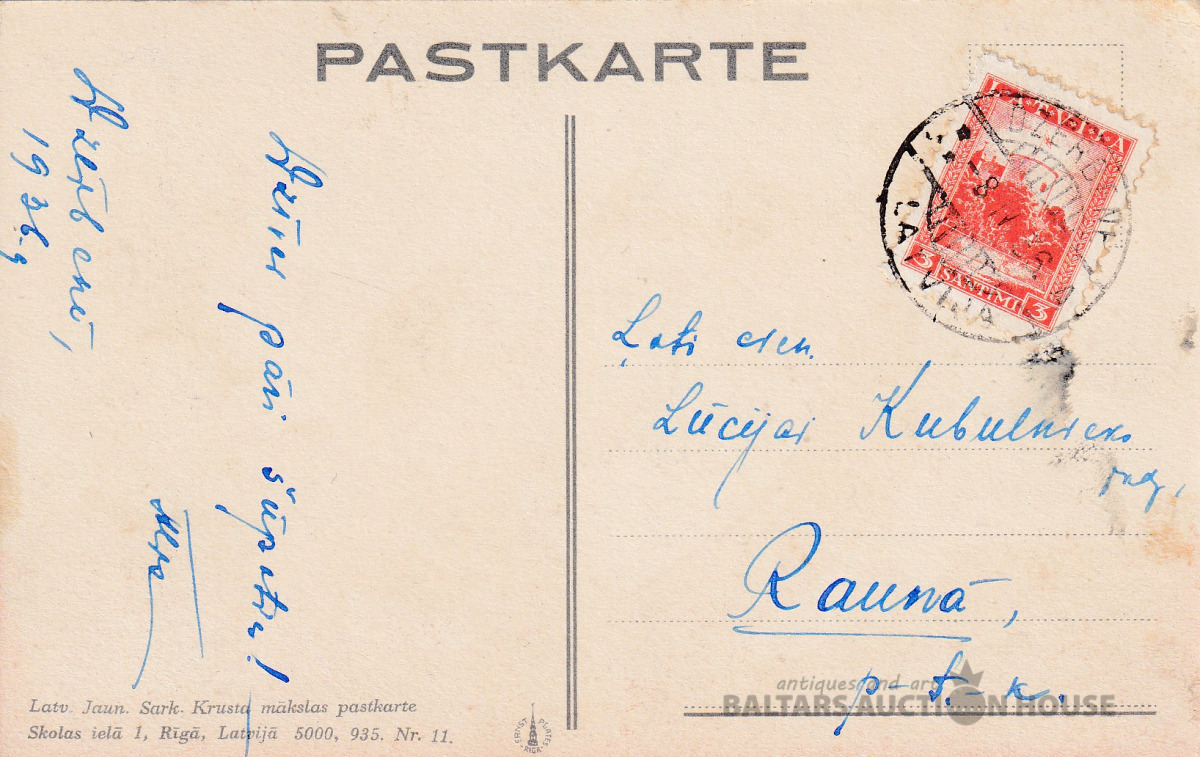 PASTKARTE
LATVIJA
3 SANTIMI 3
LATVIJA
1936. g
pāri
Ļoti cien.
Lūcijai Kubulnieks
Raunā,
p-t.-k.
Latv. Jaun. Sark. Krusta mākslas pastkarte
Skolas ielā 1, Rīgā, Latvijā 5000, 935. Nr. 11.
ERNST PLATES
RĪGĀ
antiques and art
BALTARS AUCTION HOUSE